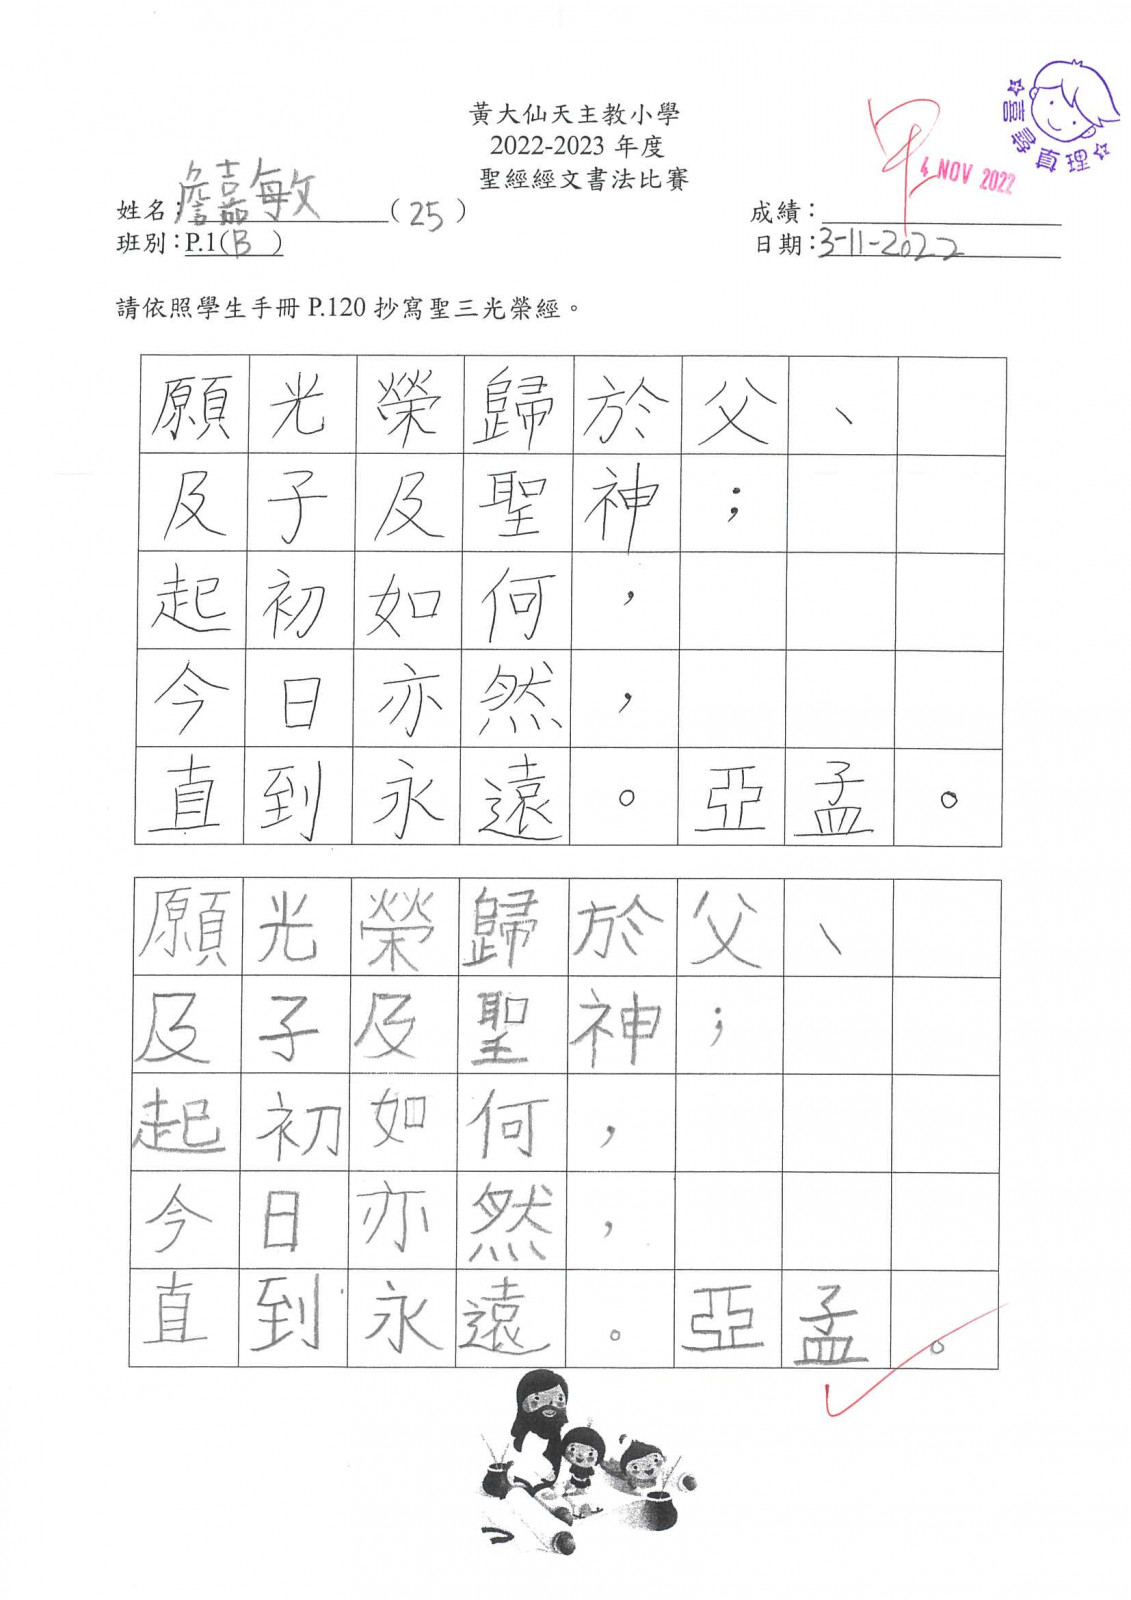 黃大仙天主教小學
2022-2023 年度
聖經經文書法比賽
喜樂真理
4 NOV 2022
姓名：詹嘉敏（25）
成績：
班別：P.1(B)
日期：3-11-2022
請依照學生手冊 P.120 抄寫聖三光榮經。
願光榮歸於父、
及子及聖神；
起初如何，
今日亦然，
直到永遠。亞孟。
願光榮歸於父、
及子及聖神；
起初如何，
今日亦然，
直到永遠。亞孟。